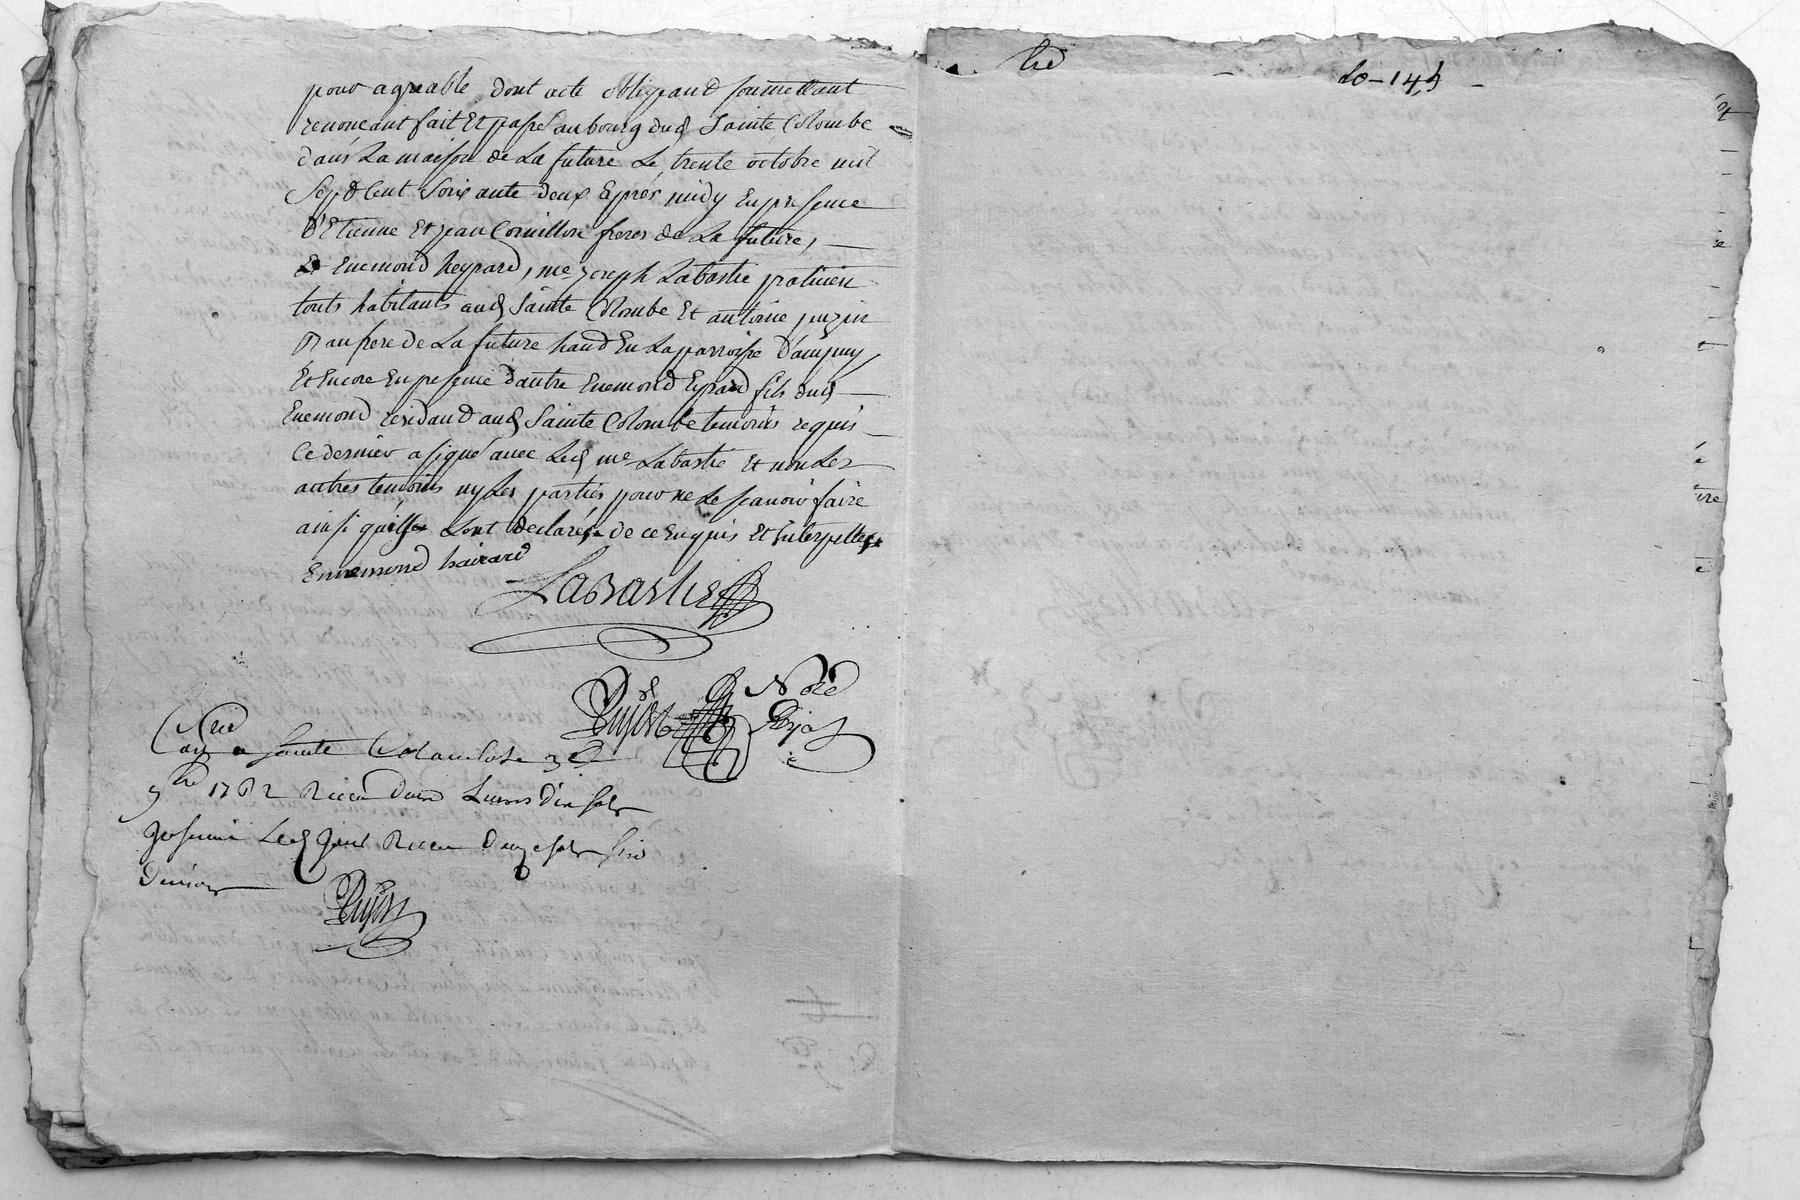 pour agreable, dont acte obligeand soumettant
renonceant fait Et passé au bourg dud Sainte Colombe
dans La maison de La future Le trente octobre mil
Sept Cent Soixante deux apres midy En presence
d'Etienne Et jean Cornillon freres de La future,
Et Enemond heyrard, me joseph Labastie praticien
touts habitants aud Sainte Colombe Et antoine juzin
Beaufrere de La future hand En La parroisse
Et Encore En presence d'autre Enemond Eyrard fils dud
Enemond residand aud Sainte Colombe temoins requis
Ce dernier a signé avec Led me Labastie Et non Les
autres temoins ny Les parties pour ne Le scavoir faire
ainsi quils Lont declaré de ce Enquis Et Interpellés
Ennemond hairard
Labastie
Pujol Nore
a Sainte Colombe
9bre 1762 Receu
Led jour Receu douze sols six
deniers
Pujol
10-145